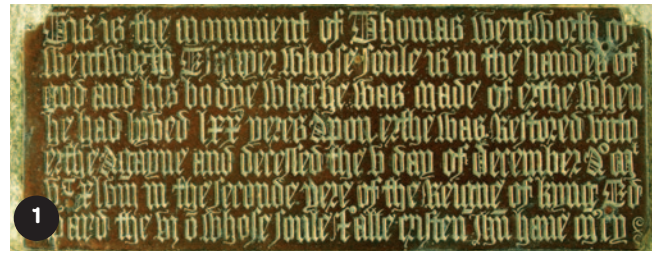 This is the monument of Thomas wentworth of
wentworth Esquyer whose soule is in the handes of
god and his bodye whiche was made of erthe when
he had lyved lxx yeres Apon erthe was Restored unto
erthe Agayne and decessed the v day of december
in the seconde yere of the Reigne of kyng Ed
ward the vi o whose soule & alle cristen Jhu have mcy
1